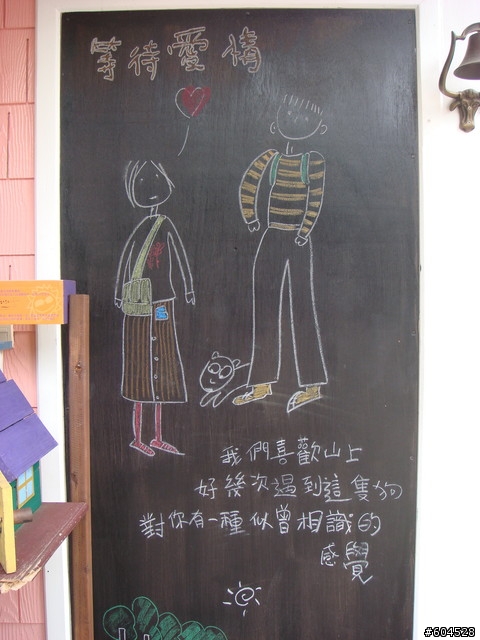 等待愛情
我們喜歡山上
好幾次遇到這隻狗
對你有一種似曾相識的
感覺
#604528